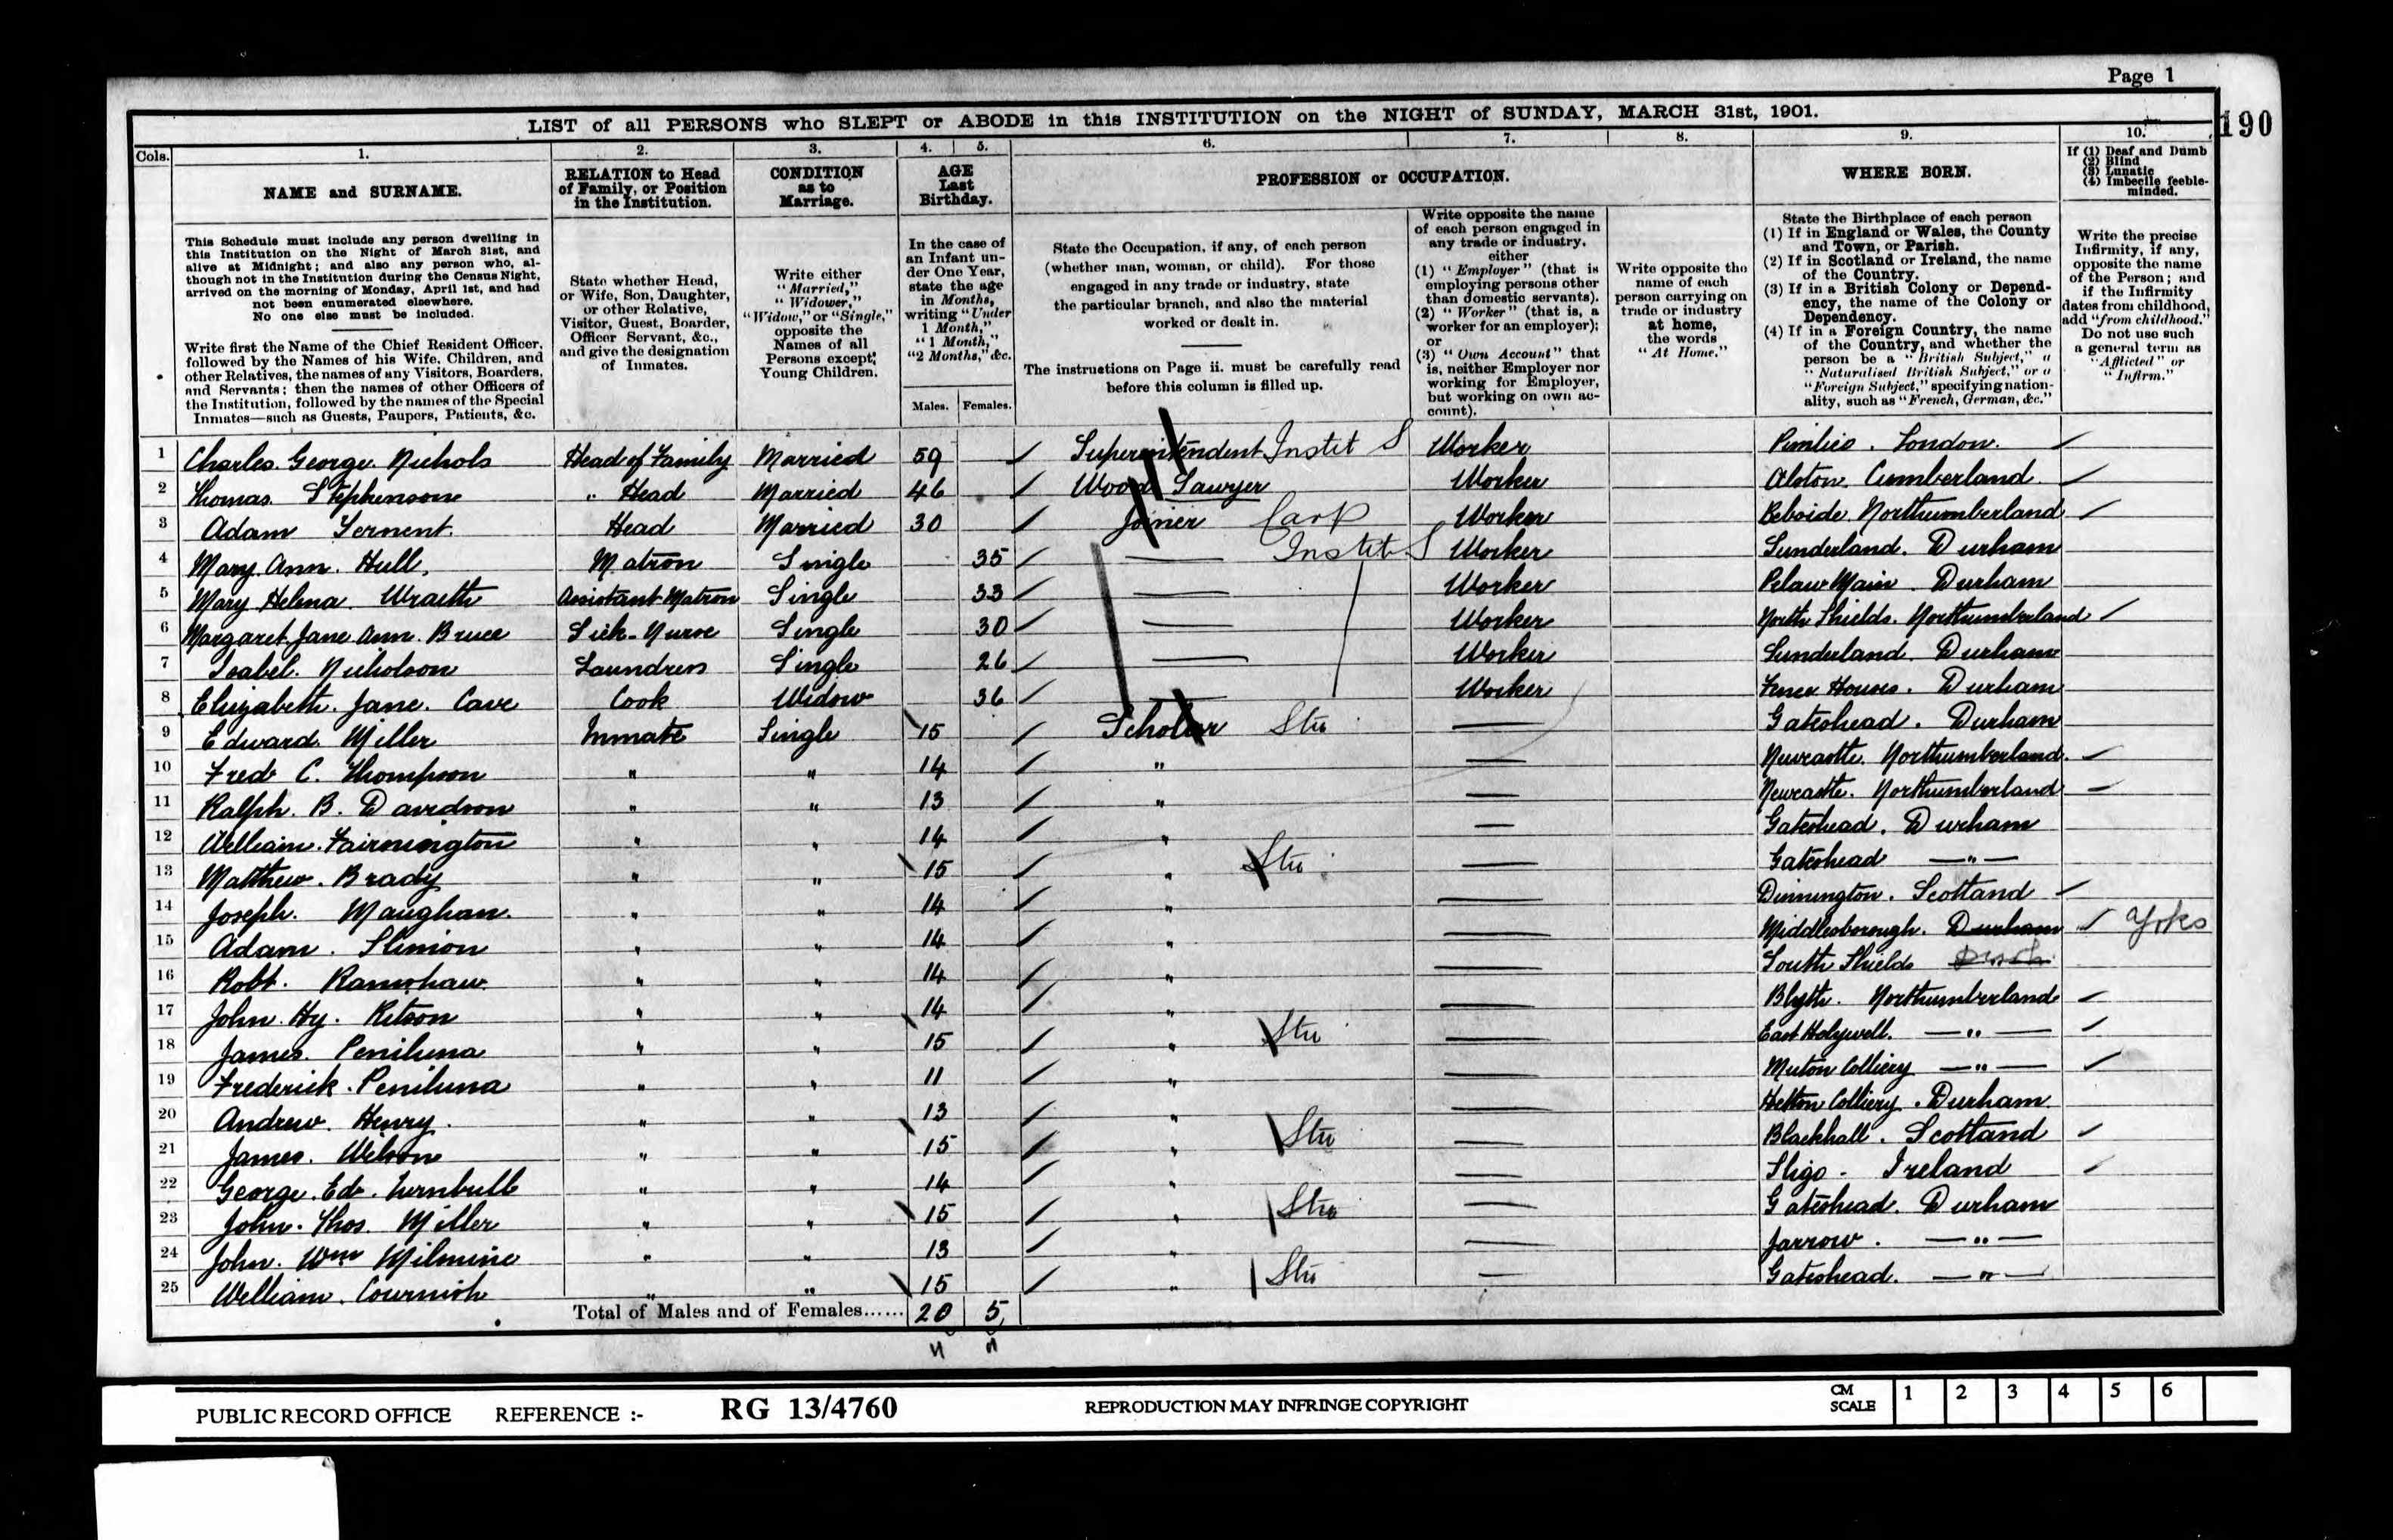 Page 1
190
LIST of all PERSONS who SLEPT or ABODE in this INSTITUTION on the NIGHT of SUNDAY, MARCH 31st, 1901.
Cols. 1. 2. 3. 4. 5. 6. 7. 8. 9. 10.
NAME and SURNAME.
This Schedule must include any person dwelling in
this Institution on the Night of March 31st, and
alive at Midnight; and also any person who, al-
though not in the Institution during the Census Night,
arrived on the morning of Monday, April 1st, and had
not been enumerated elsewhere.
No one else must be included.
Write first the Name of the Chief Resident Officer,
followed by the Names of his Wife, Children, and
other Relatives, the names of any Visitors, Boarders,
and Servants; then the names of other Officers of
the Institution, followed by the names of the Special
Inmates—such as Guests, Paupers, Patients, &c.
RELATION to Head
of Family, or Position
in the Institution.
State whether Head,
or Wife, Son, Daughter,
or other Relative,
Visitor, Guest, Boarder,
Officer Servant, &c.,
and give the designation
of Inmates.
CONDITION
as to
Marriage.
Write either
"Married,"
"Widower,"
"Widow," or "Single,"
opposite the
Names of all
Persons except
Young Children.
AGE
Last
Birthday.
In the case of
an Infant un-
der One Year,
state the age
in Months,
writing "Under
1 Month,"
"1 Month,"
"2 Months," &c.
Males. Females.
PROFESSION or OCCUPATION.
State the Occupation, if any, of each person
(whether man, woman, or child). For those
engaged in any trade or industry, state
the particular branch, and also the material
worked or dealt in.
The instructions on Page ii. must be carefully read
before this column is filled up.
Write opposite the name
of each person engaged in
any trade or industry,
either
(1) "Employer" (that is
employing persons other
than domestic servants).
(2) "Worker" (that is, a
worker for an employer);
or
(3) "Own Account" that
is, neither Employer nor
working for Employer,
but working on own ac-
count).
Write opposite the
name of each
person carrying on
trade or industry
at home,
the words
"At Home."
WHERE BORN.
State the Birthplace of each person
(1) If in England or Wales, the County
and Town, or Parish.
(2) If in Scotland or Ireland, the name
of the Country.
(3) If in a British Colony or Depend-
ency, the name of the Colony or
Dependency.
(4) If in a Foreign Country, the name
of the Country, and whether the
person be a "British Subject," a
"Naturalised British Subject," or a
"Foreign Subject," specifying nation-
ality, such as "French, German, &c."
If (1) Deaf and Dumb
(2) Blind
(3) Lunatic
(4) Imbecile feeble-
minded.
Write the precise
Infirmity, if any,
opposite the name
of the Person; and
if the Infirmity
dates from childhood,
add "from childhood."
Do not use such
a general term as
"Afflicted" or
"Infirm."
1 Charles. George. Nichols Head of Family Married 59 Superintendent Instit S Worker Pimlico. London.
2 Thomas. Stephenson " Head Married 46 Wood Sawyer Worker Alston. Cumberland.
3 Adam Head Married 30 Joiner Carp Worker Bebside. Northumberland
4 Mary. Ann. Hull, Matron Single 35 — Instit S Worker Sunderland. Durham
5 Mary Helena. Wraith Assistant Matron Single 33 — Worker Pelaw Main. Durham
6 Margaret. Jane. Ann. Bruce Sick-Nurse Single 30 — Worker North Shields. Northumberland
7 Isabel. Nicholson Laundress Single 26 — Worker Sunderland. Durham
8 Elizabeth. Jane. Cave Cook Widow 36 — Worker Fence Houses. Durham
9 Edward. Miller Inmate Single 15 Scholar Stu — Gateshead. Durham
10 Fredk C. Thompson " " 14 " — Newcastle. Northumberland.
11 Ralph. B. Davidson " " 13 " — Newcastle. Northumberland
12 William. Fairnington " " 14 " — Gateshead. Durham
13 Matthew. Brady " " 15 " Stu — Gateshead —"—
14 Joseph. Maughan. " " 14 " — Dinnington. Scotland
15 Adam. Slimon " " 14 " — Middlesborough. Durham Yorks
16 Robt. Ramshaw. " " 14 " — South Shields Durh
17 John. Hy. Ritson " " 14 " — Blyth. Northumberland
18 James. Peniluna " " 15 " Stu — East Holywell. —"—
19 Frederick. Peniluna " " 11 " — Colliery —"—
20 Andrew. Henry. " " 13 " — Hetton Colliery. Durham
21 James. Wilson " " 15 " Stu — Blackhall. Scotland
22 George. Ed. Turnbull " " 14 " — Sligo - Ireland
23 John. Thos. Miller " " 15 " Stu — Gateshead. Durham
24 John. Wm Milmine " " 13 " — Jarrow. —"—
25 William. Cournish " " 15 " Stu — Gateshead. —"—
Total of Males and of Females...... 20 5
PUBLIC RECORD OFFICE REFERENCE :- RG 13/4760 REPRODUCTION MAY INFRINGE COPYRIGHT CM SCALE 1 2 3 4 5 6